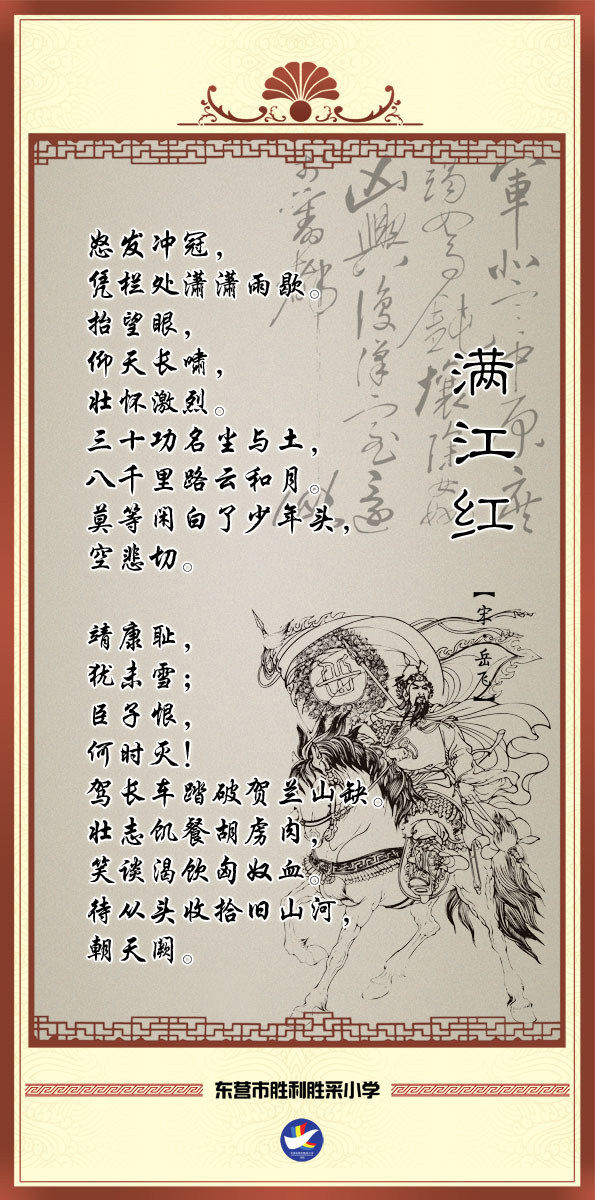 满江红
【宋·岳飞】
怒发冲冠，
凭栏处潇潇雨歇。
抬望眼，
仰天长啸，
壮怀激烈。
三十功名尘与土，
八千里路云和月。
莫等闲白了少年头，
空悲切。
靖康耻，
犹未雪；
臣子恨，
何时灭！
驾长车踏破贺兰山缺。
壮志饥餐胡虏肉，
笑谈渴饮匈奴血。
待从头收拾旧山河，
朝天阙。
东营市胜利胜采小学